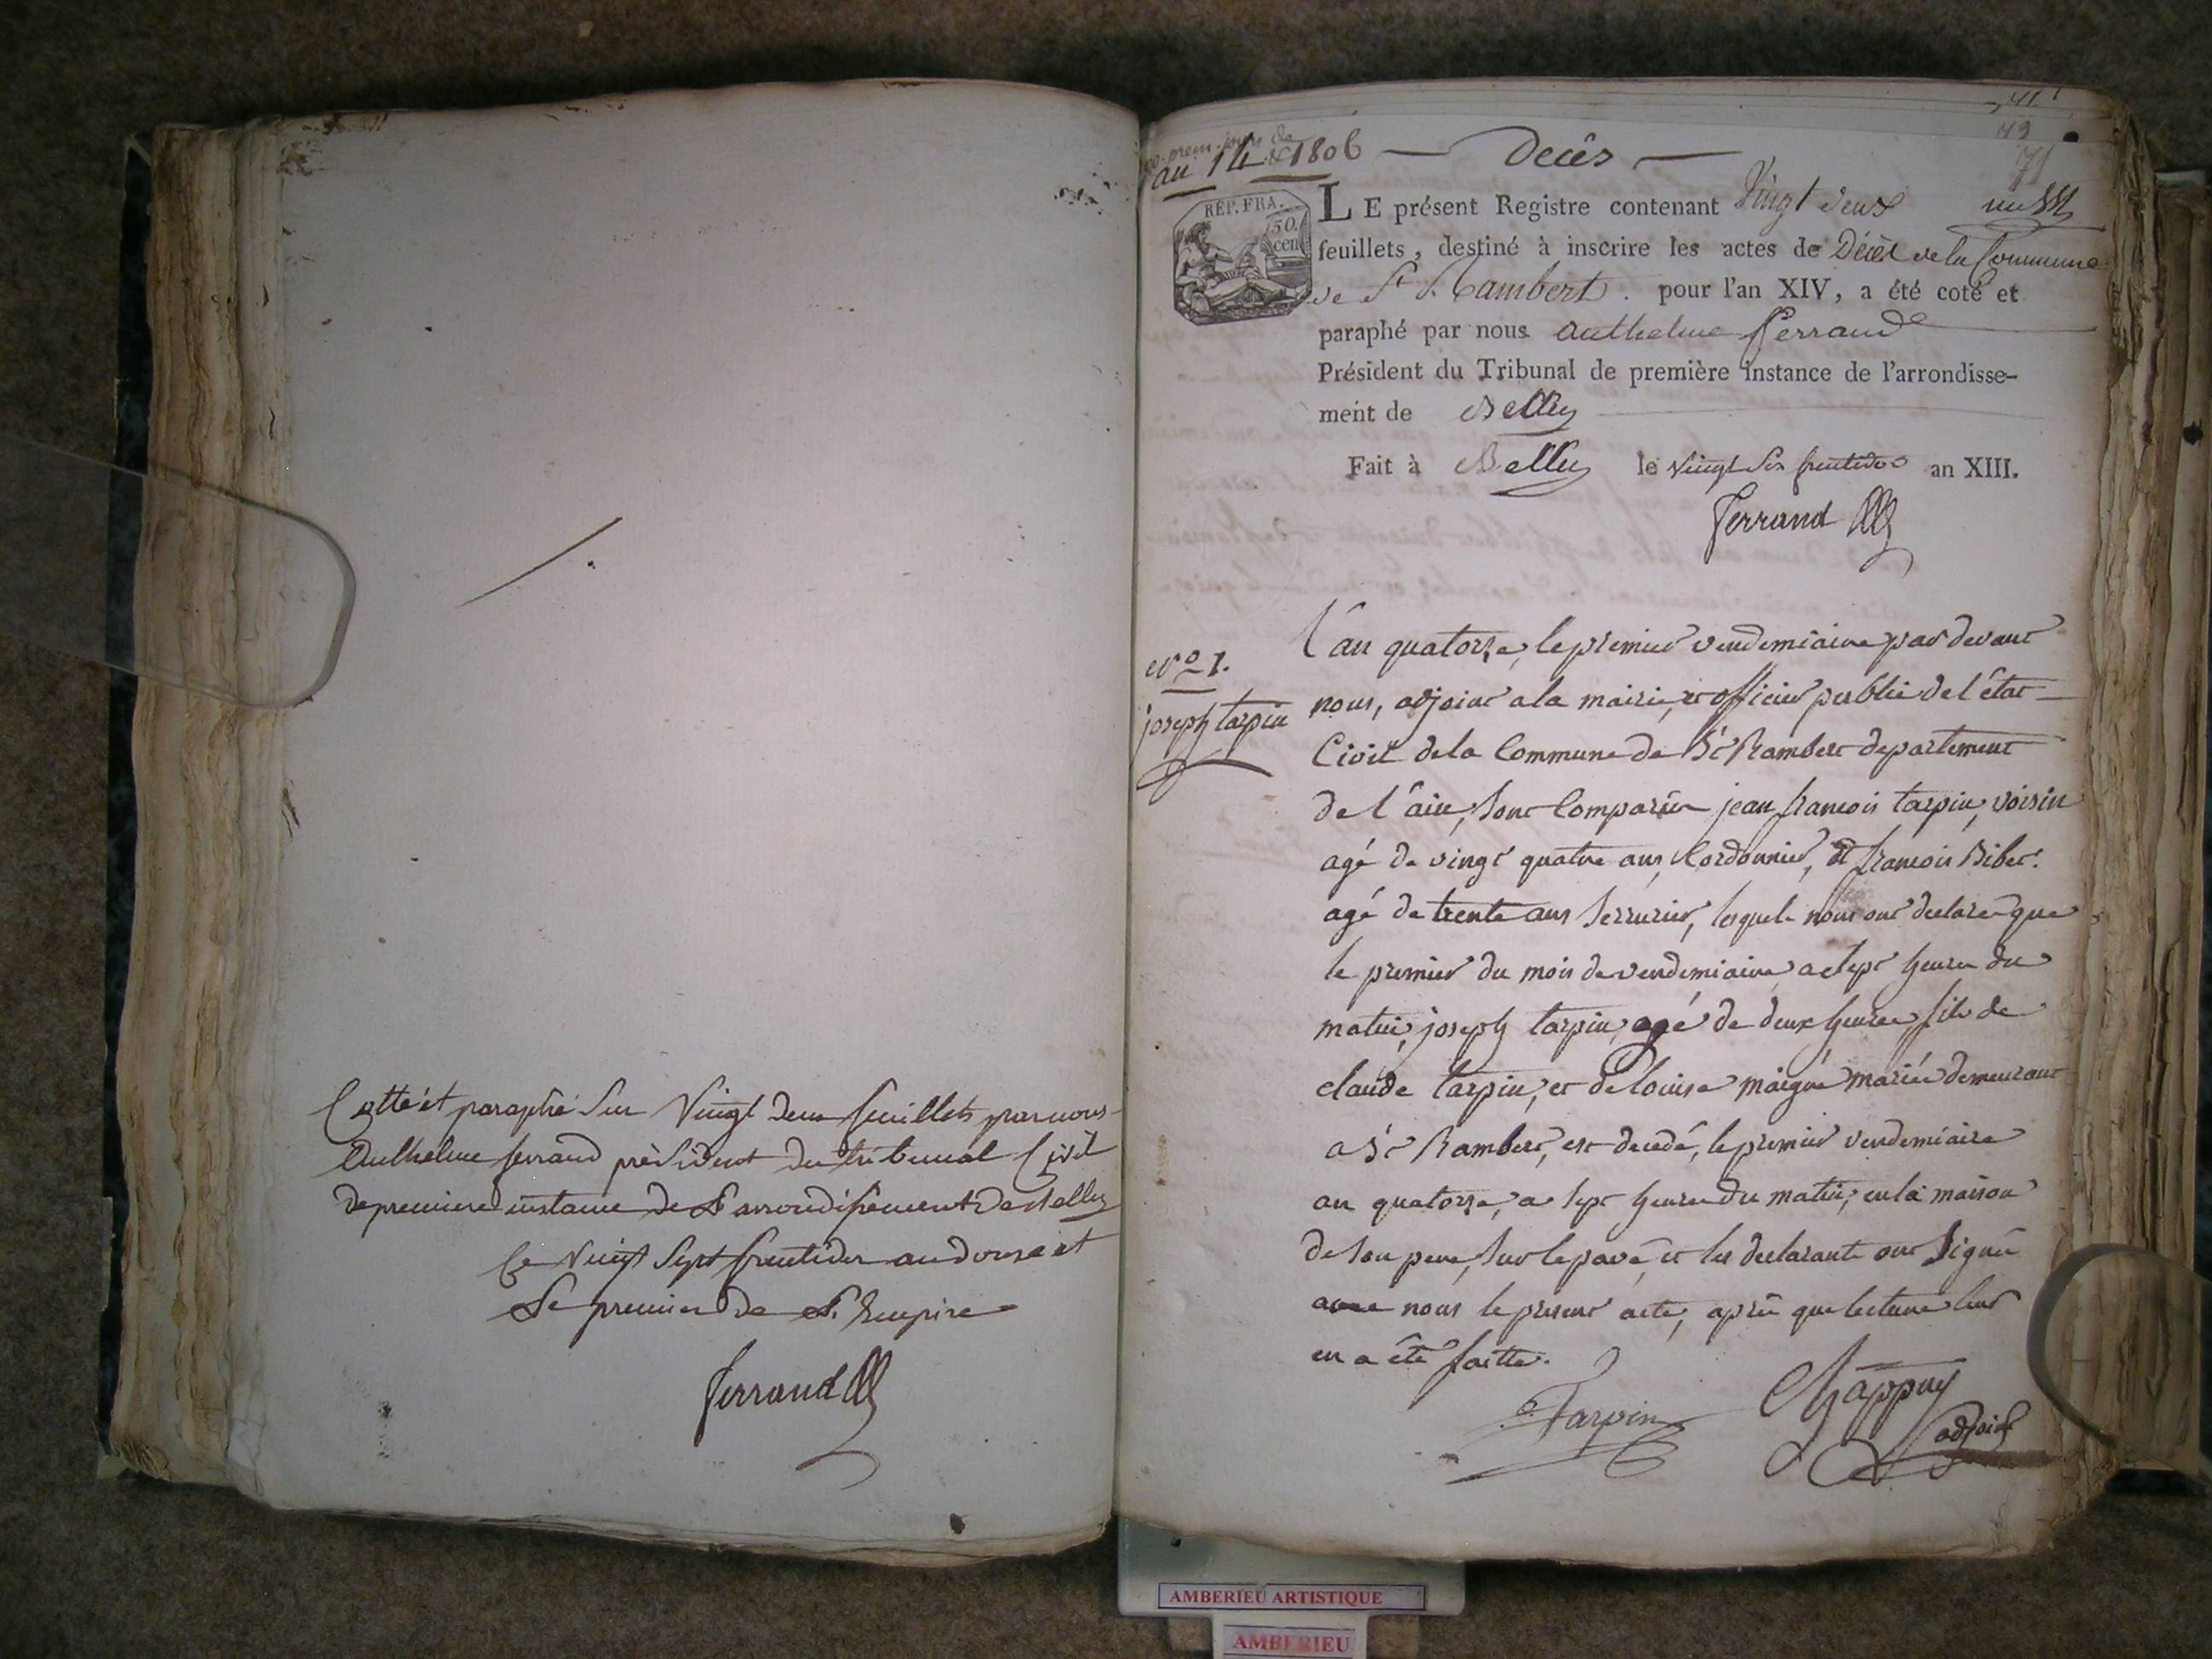 Cotté et paraphé Sur Vingt deux feuillets par nous
Anthelme ferrand président du tribunal Civil
de premiere instance de L'arrondissement de Belley
Ce Vingt Sept fructidor an douze et
Le premier de L'Empire
ferrand
an 14 & 1806 — Decès —
41
49
71
RÉP. FRA.
50
cen
LE présent Registre contenant Vingt deux
feuillets, destiné à inscrire les actes de Décès de la Commune
de St Rambert. pour l'an XIV, a été coté et
paraphé par nous Anthelme ferrand
Président du Tribunal de première instance de l'arrondisse-
ment de Belley
Fait à Belley le vingt Six fructidor an XIII.
ferrand
N° 1.
joseph tarpin
L'an quatorze, le premier vendemiaire par devant
nous, adjoint a la mairie, et officier public de l'état
Civil de la Commune de St Rambert departement
de l'ain, sont Comparus jean francois tarpin, voisin
agé de vingt quatre ans, Cordonnier, et francois Bibet.
agé de trente ans Serrurier, lesquels nous ont declaré que
le premier du mois de vendemiaire a sept heures du
matin, joseph tarpin, agé de deux heures, fils de
claude tarpin, et de louise maigne mariés demeurant
a St Rambert, est decedé, le premier vendemiaire
an quatorze, a sept heures du matin, en la maison
de son pere, sur le pavé, et les declarants ont Signé
avec nous le present acte, après que lecture leur
en a été faitte.
Tarpin
Chappuy
adjoint
AMBERIEU ARTISTIQUE
AMBERIEU